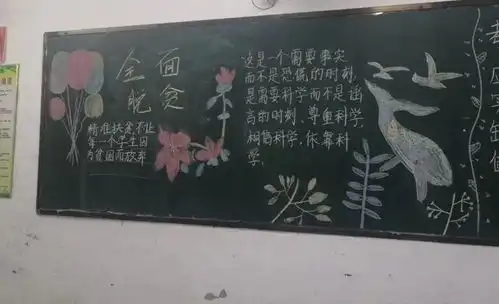 全面
脱贫
精准扶贫不让
每一个学生因
为贫困而放弃
这是一个需要事实
而不是恐慌的时刻
是需要科学而不是谣
言的时刻、尊重科学
相信科学、依靠科
学。